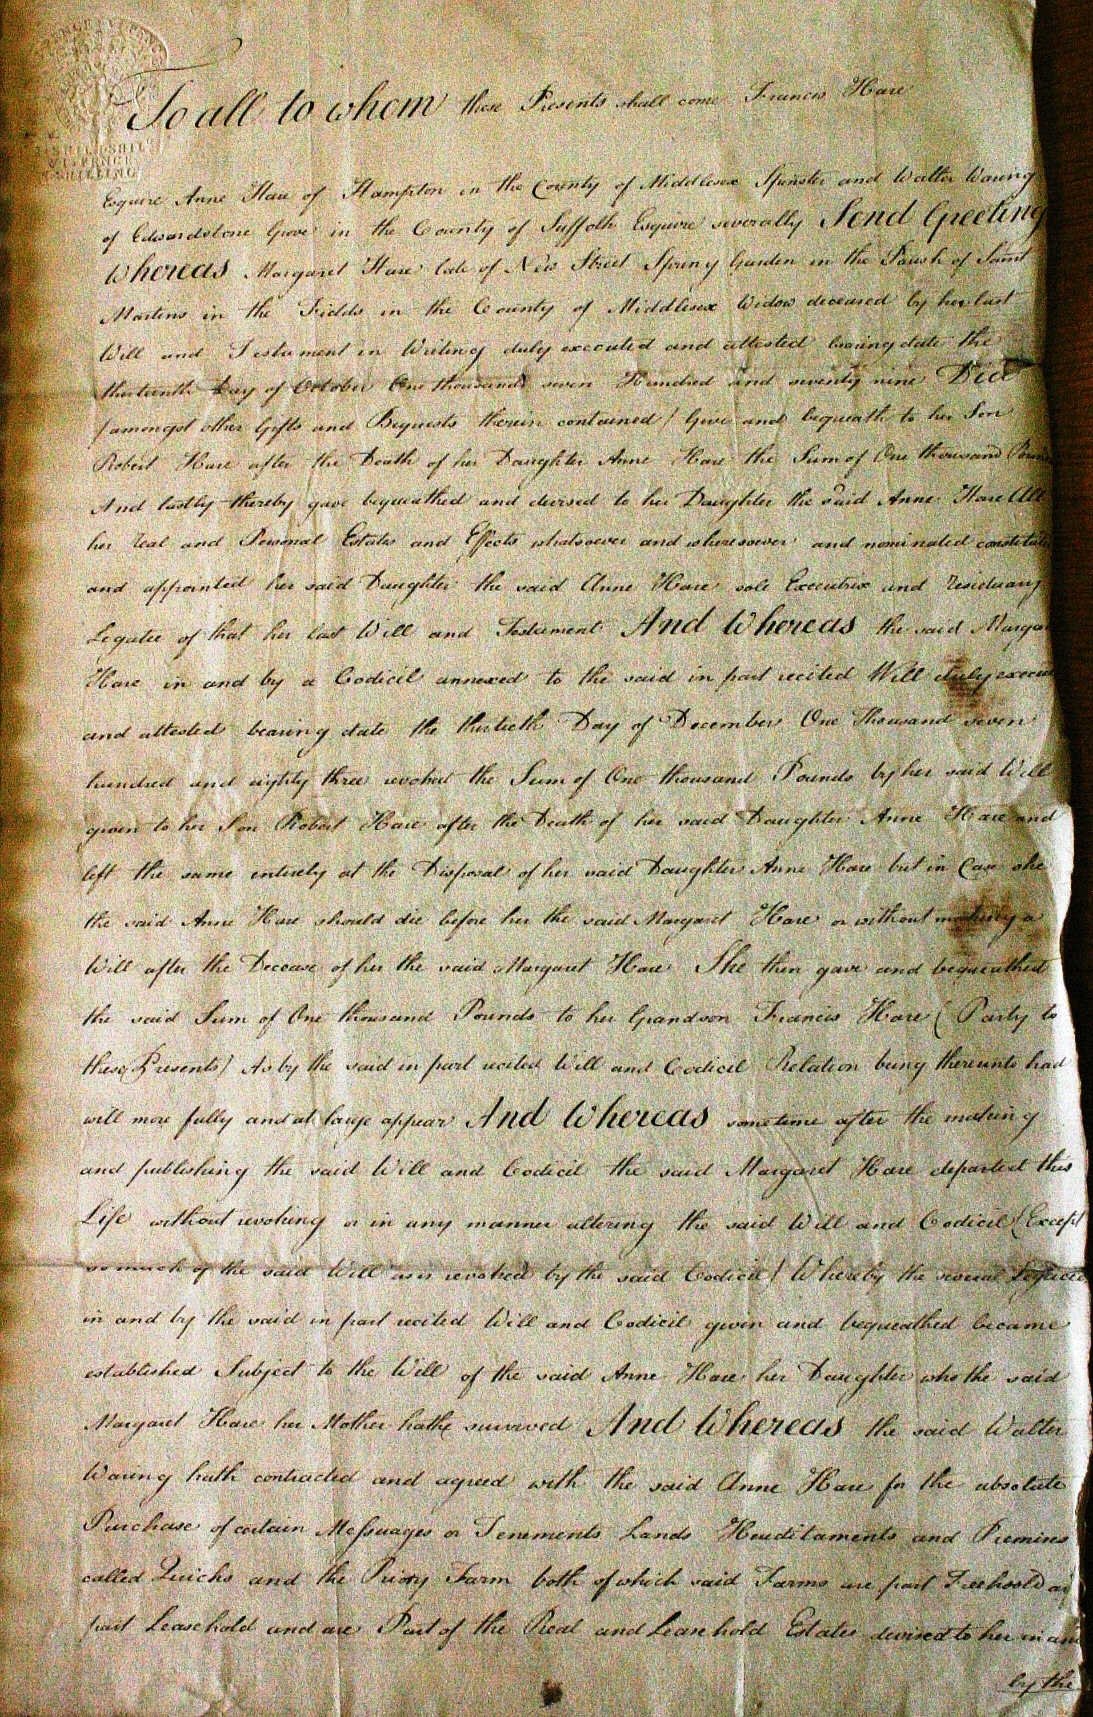 To all to whom these Presents shall come Francis Hare
Esquire Anne Hare of Hampton in the County of Middlesex Spinster and Walter Waring
of Edwardstone Grove in the County of Suffolk Esquire severally Send Greeting
Whereas Margaret Hare late of New Street Spring Garden in the Parish of Saint
Martins in the Fields in the County of Middlesex Widow deceased by her last
Will and Testament in Writing duly executed and attested bearing date the
thirteenth Day of October One thousand seven Hundred and seventy nine Did
(amongst other Gifts and Bequests therein contained) Give and bequeath to her Son
Robert Hare after the Death of her Daughter Anne Hare the Sum of One thousand Pounds
And lastly thereby gave bequeathed and devised to her Daughter the said Anne Hare All
her real and Personal Estates and Effects whatsoever and wheresoever and nominated constituted
and appointed her said Daughter the said Anne Hare sole Executrix and residuary
Legatee of that her last Will and Testament And Whereas the said Margaret
Hare in and by a Codicil annexed to the said in part recited Will duly executed
and attested bearing date the thirtieth Day of December One Thousand seven
hundred and eighty three revoked the Sum of One thousand Pounds by her said Will
given to her Son Robert Hare after the Death of her said Daughter Anne Hare and
left the same entirely at the Disposal of her said Daughter Anne Hare but in Case she
the said Anne Hare should die before her the said Margaret Hare or without making a
Will after the Decease of her the said Margaret Hare She then gave and bequeathed
the said Sum of One thousand Pounds to her Grandson Francis Hare (Party to
these Presents) As by the said in part recited Will and Codicil Relation being thereunto had
will more fully and at large appear And Whereas sometime after the making
and publishing the said Will and Codicil the said Margaret Hare departed this
Life without revoking or in any manner altering the said Will and Codicil (Except
so much of the said Will as is revoked by the said Codicil) Whereby the several Legacies
in and by the said in part recited Will and Codicil given and bequeathed became
established Subject to the Will of the said Anne Hare her Daughter who the said
Margaret Hare her Mother hath survived And Whereas the said Walter
Waring hath contracted and agreed with the said Anne Hare for the absolute
Purchase of certain Messuages or Tenements Lands Hereditaments and Premises
called Quicks and the Priory Farm both of which said Farms are part Freehold and
part Leasehold and are Part of the Real and Leasehold Estates devised to her in and
by the